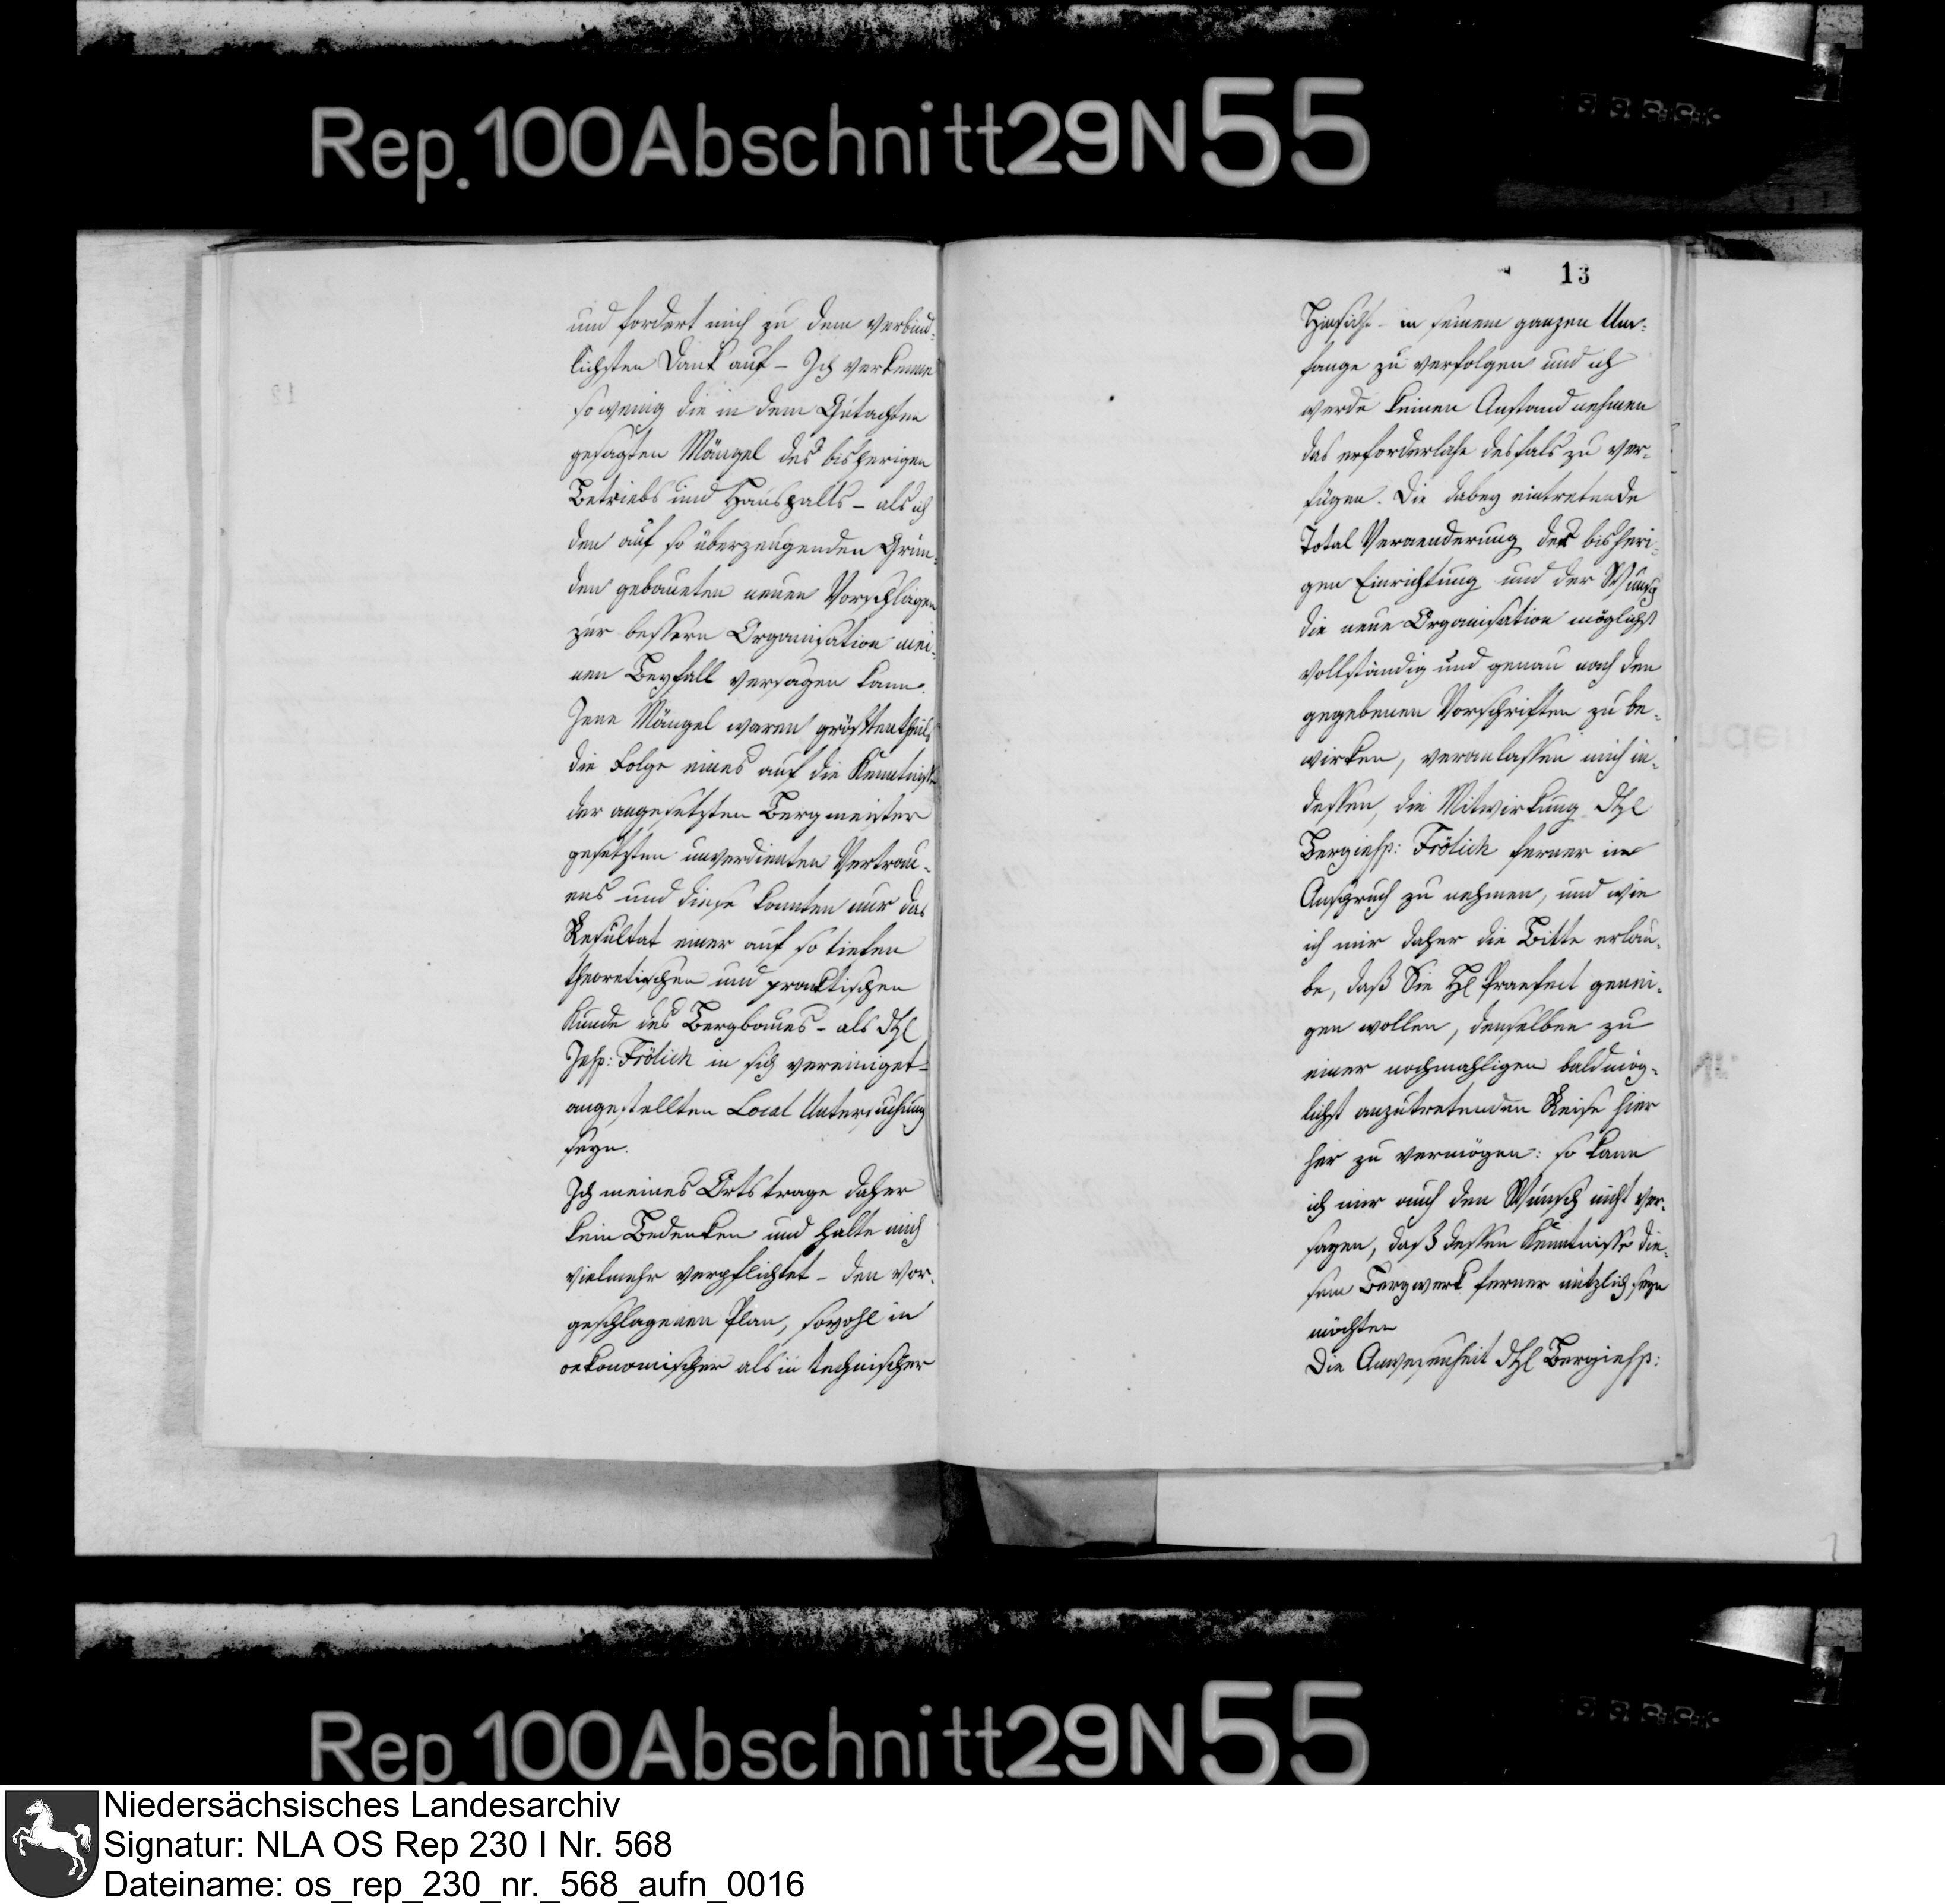 Rep. 100 Abschnitt 29 N 55
und fordert mich zu dem verbind-
lichsten Dank auf – Ich verkenne
so wenig die in dem Gutachten
gesagten Mängel des bisherigen
Betriebs und Haushalts – als ich
den auf so überzeugenden Grün-
den gebaueten neuen Vorschlägen
zur bessern Organisation mei-
nen Beyfall versagen kann.
Jene Mängel waren größtentheils
die Folge eines auf die Kenntniße
der angesetzten Bergmeister
gesetzten unverdienten Vertrau-
ens und diese konnten nur das
Resultat einer auf so tiefen
theoretischen und practischen
Kunde des Bergbaues – als dHl
Insp: Frölich in sich vereiniget –
angestellten Local Untersuchung
seyn.
Ich meines Orts trage daher
kein Bedenken und halte mich
vielmehr verpflichtet – den vor-
geschlagenen Plan, sowohl in
oekonomischer als in technischer
13
Hinsicht – in seinem ganzen Um-
fange zu verfolgen und ich
werde keinen Anstand nehmen
das erforderliche desfals zu ver-
fügen. Die dabey eintretende
Total Veraenderung der bisheri-
gen Einrichtung und der Wunsch
die neue Organisation möglichst
vollständig und genau nach den
gegebenen Vorschriften zu be-
wirken, veranlassen mich in-
dessen, die Mitwirkung dHl
Berginsp: Frölich ferner in
Anspruch zu nehmen, und wie
ich mir daher die Bitte erlau-
be, daß Sie Hl Praefect genei-
gen wollen, denselben zu
einer nochmahligen baldmög-
lichst anzutretenden Reise hier
her zu vermögen: so kann
ich mir auch den Wunsch nicht ver-
sagen, daß dessen Kenntnisse die-
sem Bergwerk ferner nützlich seyn
möchten
Die Anwesenheit dHl Berginsp:
Rep. 100 Abschnitt 29 N 55
Niedersächsisches Landesarchiv
Signatur: NLA OS Rep 230 I Nr. 568
Dateiname: os_rep_230_nr._568_aufn_0016